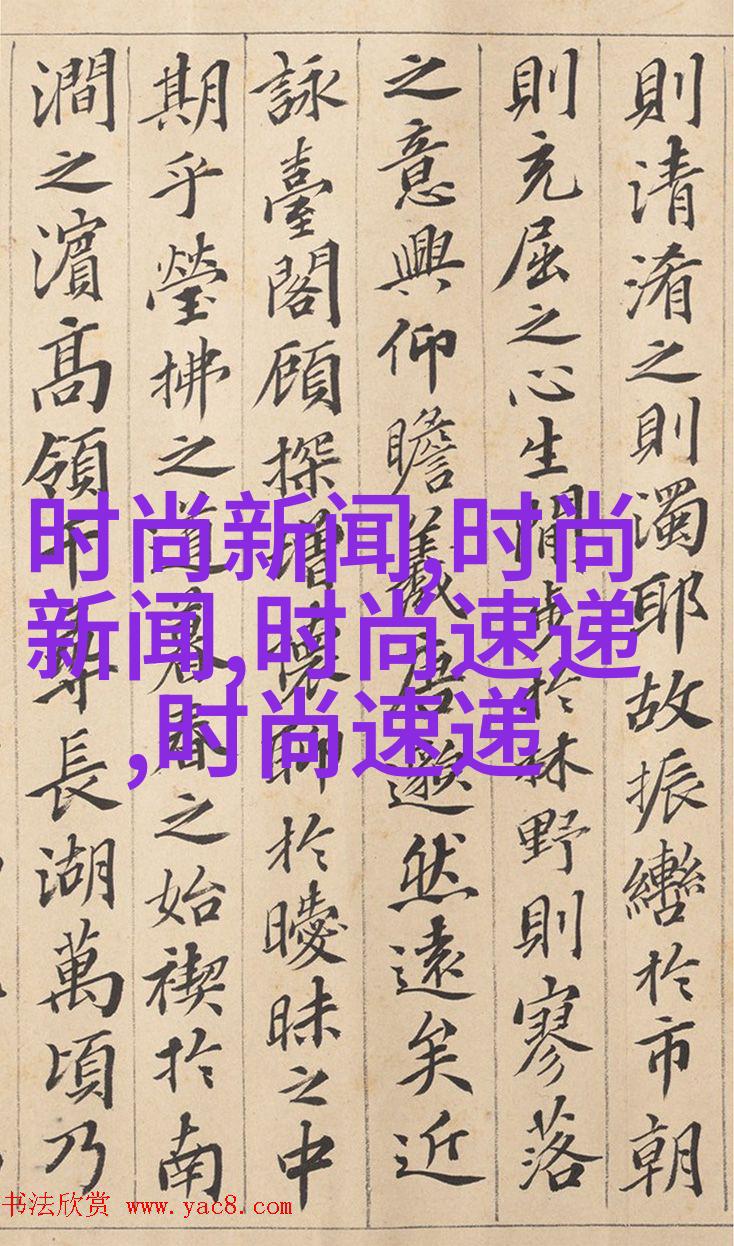 則清淆之則濁耶故振轡於市朝
則充屈之心生閒步於林野則寥落
之意興仰瞻羲唐邈然遠矣近
詠臺閣顧探增懷聊於曖昧之中
期乎瑩拂之道暮春之始禊於南
澗之濱高領千尋長湖萬頃乃
时尚新闻,时尚
新闻,时尚速递
,时尚速递
书法欣赏 www.yac8.com